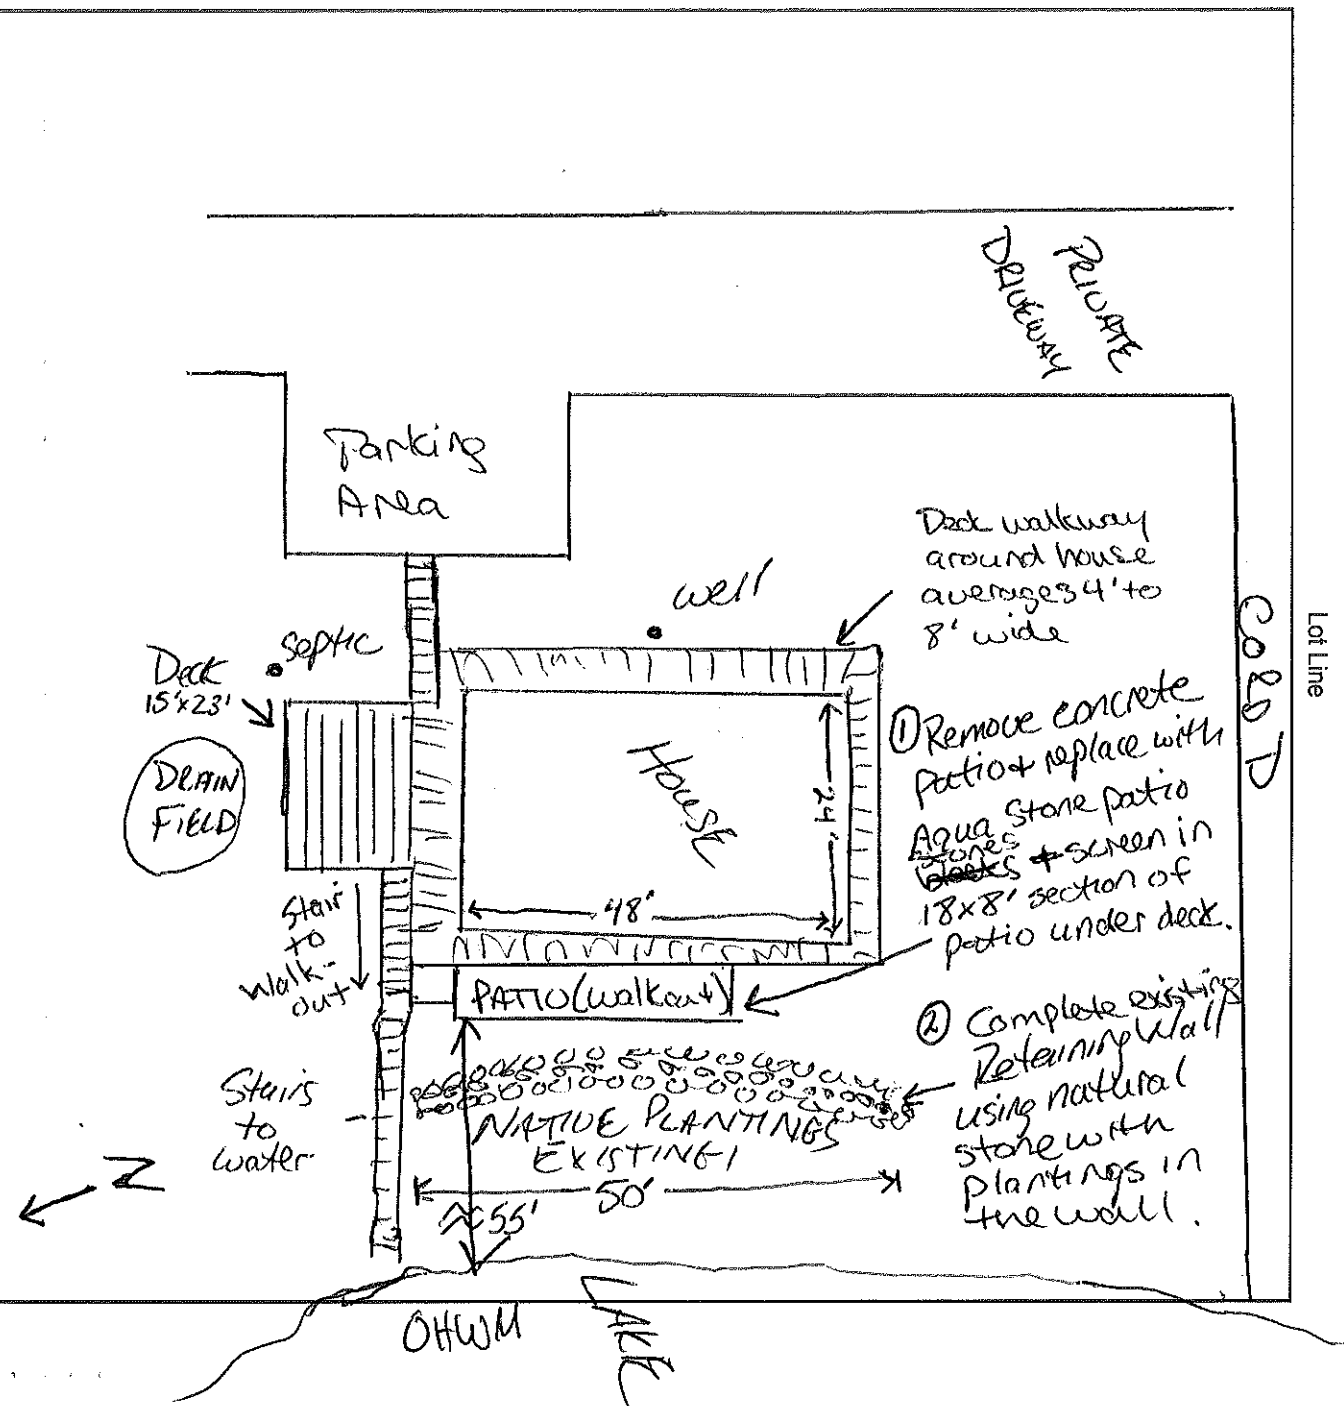 PRIVATE
DRIVEWAY
Parking
Area
Deck walkway
around house
averages 4' to
8' wide
well
septic
Deck
15'x23'
DRAIN
FIELD
House
24'
48'
Co Rd D
Lot Line
① Remove concrete
patio + replace with
Aqua Stone patio
stones
+ screen in
18x8' section of
patio under deck.
Stair
to
walk-
out
PATIO (walkout)
② Complete existing
Retaining Wall
using natural
stone with
plantings in
the wall.
NATIVE PLANTINGS
EXISTING
50'
≈55'
Stairs
to
water
N
OHWM
LAKE